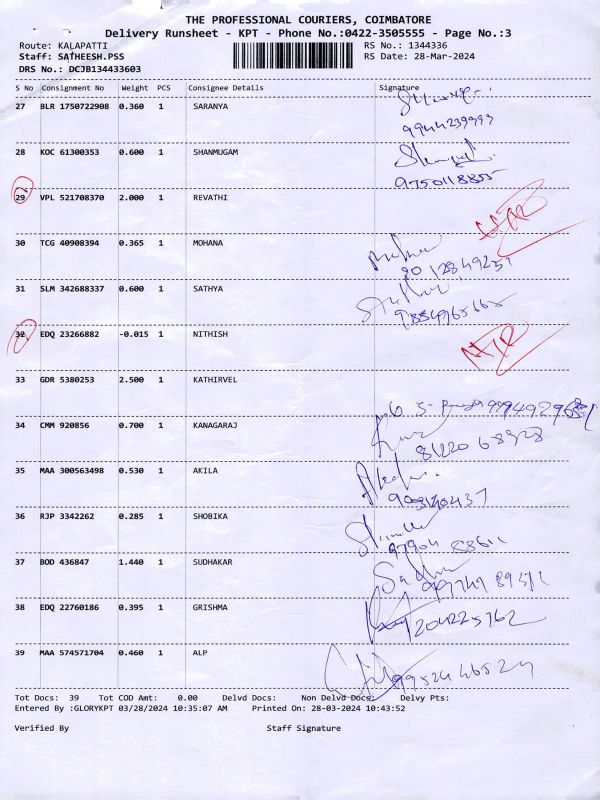 THE PROFESSIONAL COURIERS, COIMBATORE
Delivery Runsheet - KPT - Phone No.:0422-3505555 - Page No.:3
Route: KALAPATTI RS No.: 1344336
Staff: SATHEESH.PSS RS Date: 28-Mar-2024
DRS No.: DCJB134433603
S No Consignment No Weight PCS Consignee Details Signature
27 BLR 1750722908 0.360 1 SARANYA
9944239993
28 KOC 61300353 0.600 1 SHANMUGAM
9750118855
29 VPL 521708370 2.000 1 REVATHI
30 TCG 40908394 0.365 1 MOHANA
31 SLM 342688337 0.600 1 SATHYA
32 EDQ 23266882 -0.015 1 NITHISH
33 GDR 5380253 2.500 1 KATHIRVEL
34 CMM 920856 0.700 1 KANAGARAJ
81220 68928
35 MAA 300563498 0.530 1 AKILA
36 RJP 3342262 0.285 1 SHOBIKA
37 BOD 436847 1.440 1 SUDHAKAR
38 EDQ 22760186 0.395 1 GRISHMA
39 MAA 574571704 0.460 1 ALP
Tot Docs: 39 Tot COD Amt: 0.00 Delvd Docs: Non Delvd Docs: Delvy Pts:
Entered By :GLORYKPT 03/28/2024 10:35:07 AM Printed On: 28-03-2024 10:43:52
Verified By Staff Signature